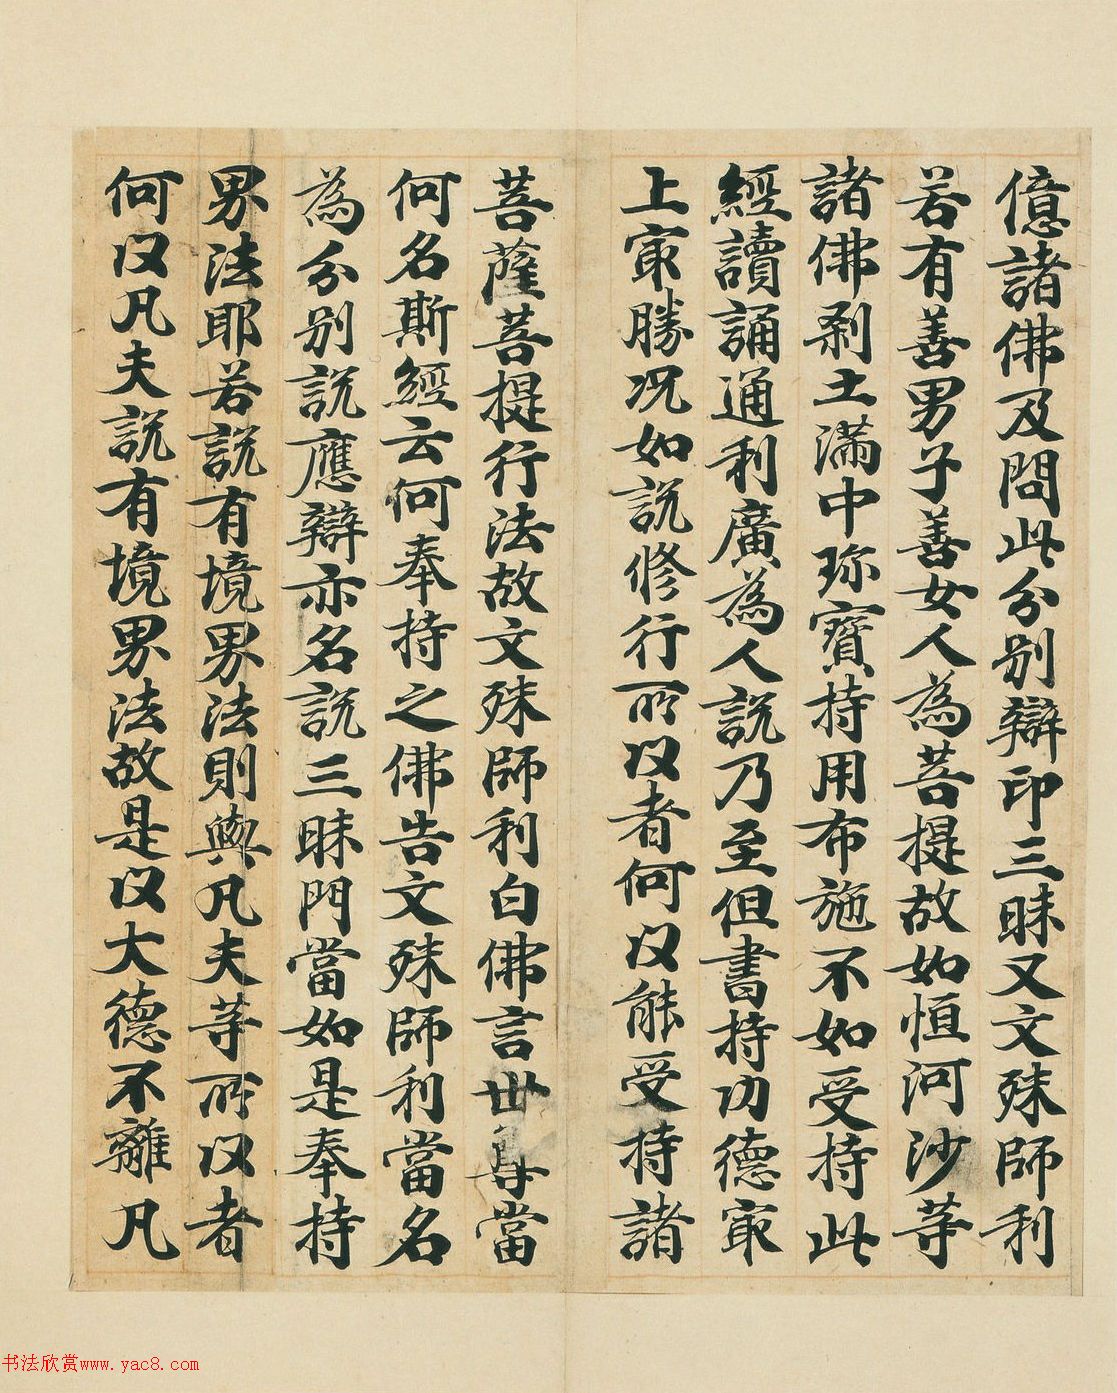 億諸佛及問此分别辯印三昧又文殊師利
若有善男子善女人為菩提故如恒河沙等
諸佛剎土滿中珎寶持用布施不如受持此
經讀誦通利廣為人說乃至但書持功德冣
上冣勝况如說修行所以者何以能受持諸
菩薩菩提行法故文殊師利白佛言世尊當
何名斯經云何奉持之佛告文殊師利當名
為分别說應辯亦名說三昧門當如是奉持
界法耶若說有境界法則與凡夫等所以者
何以凡夫說有境界法故是以大德不離凡
书法欣赏www.yac8.com